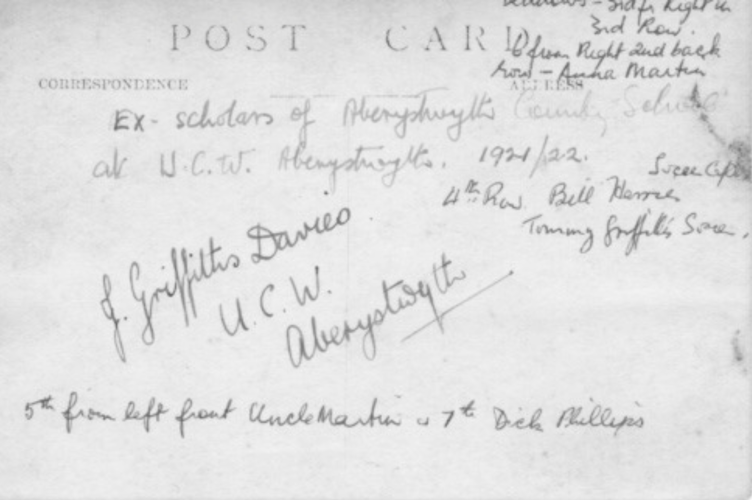 3rd fr Right in
3rd Row.
POST CARD
6 from Right 2nd back
Row - Anna Martin
CORRESPONDENCE
ADDRESS
Ex- scholars of Aberystwyth County School
at U.C.W. Aberystwyth. 1921/22.
Soccer
4th Row Bill
Tommy Griffiths
J. Griffiths Davies.
U.C.W.
Aberystwyth
5th from left front Uncle Martin & 7th Dick Phillips